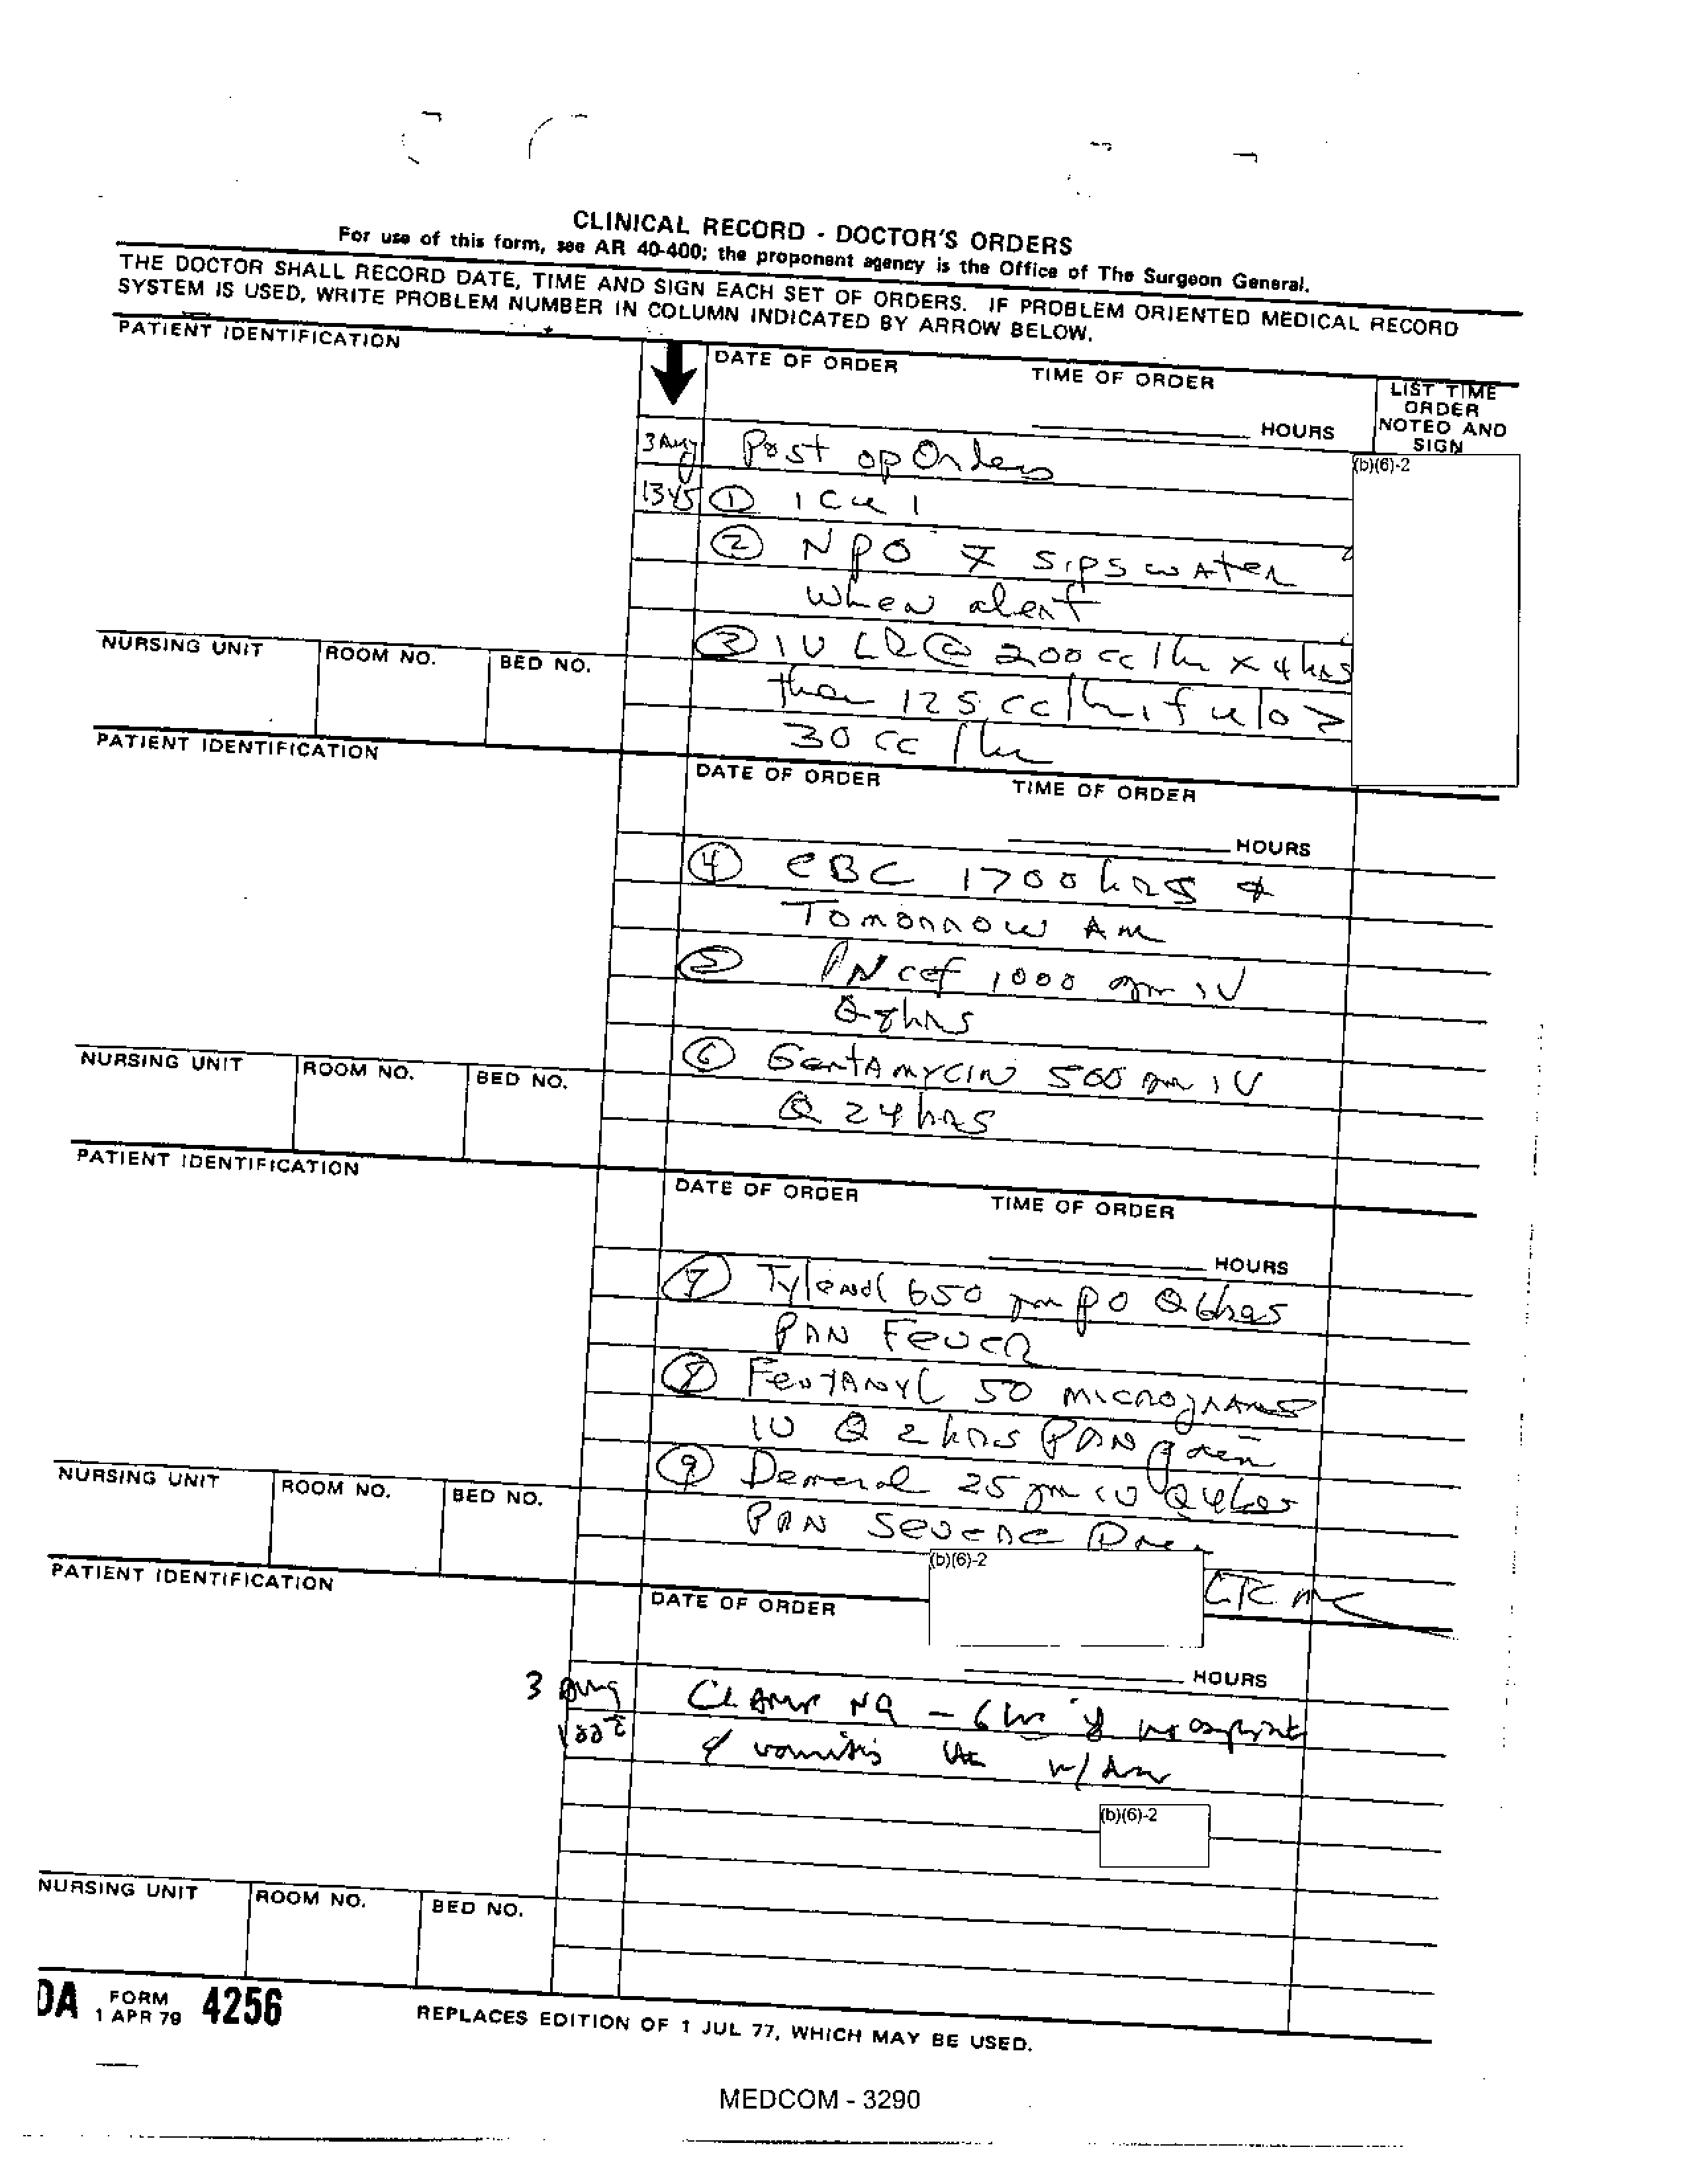 CLINICAL RECORD - DOCTOR'S ORDERS
For use of this form, see AR 40-400; the proponent agency is the Office of The Surgeon General.
THE DOCTOR SHALL RECORD DATE, TIME AND SIGN EACH SET OF ORDERS. IF PROBLEM ORIENTED MEDICAL RECORD
SYSTEM IS USED, WRITE PROBLEM NUMBER IN COLUMN INDICATED BY ARROW BELOW.
PATIENT IDENTIFICATION
DATE OF ORDER TIME OF ORDER
LIST TIME
ORDER
NOTED AND
SIGN
HOURS
(b)(6)-2
3 Aug Post op Orders
1345 ① ICU 1
② NPO sips water
when alert
③ IV LR @ 200 cc/hr x 4 hrs
then 125 cc/hr if u/o >
30 cc/hr
NURSING UNIT ROOM NO. BED NO.
PATIENT IDENTIFICATION
DATE OF ORDER TIME OF ORDER
HOURS
④ CBC 1700 hrs +
Tomorrow AM
⑤ ANcef 1000 IV
Q8hrs
⑥ GentAMYCIN 500 IV
Q 24 hrs
NURSING UNIT ROOM NO. BED NO.
PATIENT IDENTIFICATION
DATE OF ORDER TIME OF ORDER
HOURS
⑦ Tylenol 650 po Q6hrs
PRN Fever
⑧ FentANYL 50 micrograms
IV Q 2 hrs PRN pain
⑨ Demerol 25 IV Q4hrs
PRN severe
(b)(6)-2
LTC MC
NURSING UNIT ROOM NO. BED NO.
PATIENT IDENTIFICATION
DATE OF ORDER
HOURS
3 Aug CLAMP NG - 6 hr if no
vomitis
(b)(6)-2
NURSING UNIT ROOM NO. BED NO.
DA FORM 1 APR 79 4256
REPLACES EDITION OF 1 JUL 77, WHICH MAY BE USED.
MEDCOM - 3290